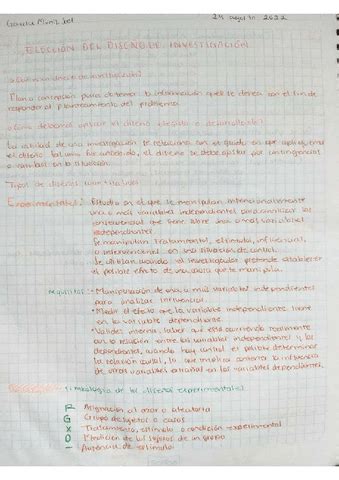 ELECCIÓN DEL DISEÑO DE INVESTIGACIÓN
Plan o concepción para obtener la información que se desea con el fin de
responder al planteamiento del problema.
¿Cómo debemos aplicar el diseño elegido o desarrollado?
La calidad de una investigación se relaciona con el grado en que apliquemos
el diseño tal como fue concebido, el diseño se debe ajustar por contingencias
o cambios en la situación.
Tipos de diseños cuantitativos
Experimentales: Estudio en el que se manipulan intencionalmente
una o más variables independientes para analizar las
consecuencias que tiene sobre una o más variables
dependientes.
Se manipulan tratamientos, estímulos, influencias,
o intervenciones en una situación de control.
Se utilizan cuando el investigador pretende establecer
el posible efecto de una causa que se manipula.
Requisitos: • Manipulación de una o más variables independientes
para analizar influencias.
• Medir el efecto que la variable independiente tiene
en la variable dependiente.
• Validez interna, saber qué está ocurriendo realmente
con la relación entre las variables independiente y las
dependientes, cuando hay control es posible determinar
la relación causal, lo que implica contener la influencia
de otras variables extrañas en las variables dependientes.
Simbología de los diseños experimentales
R Asignación al azar o aleatoria
G Grupo de sujetos o casos
X Tratamiento, estímulo o condición experimental
O Medición de los sujetos de un grupo
- Ausencia de estímulo